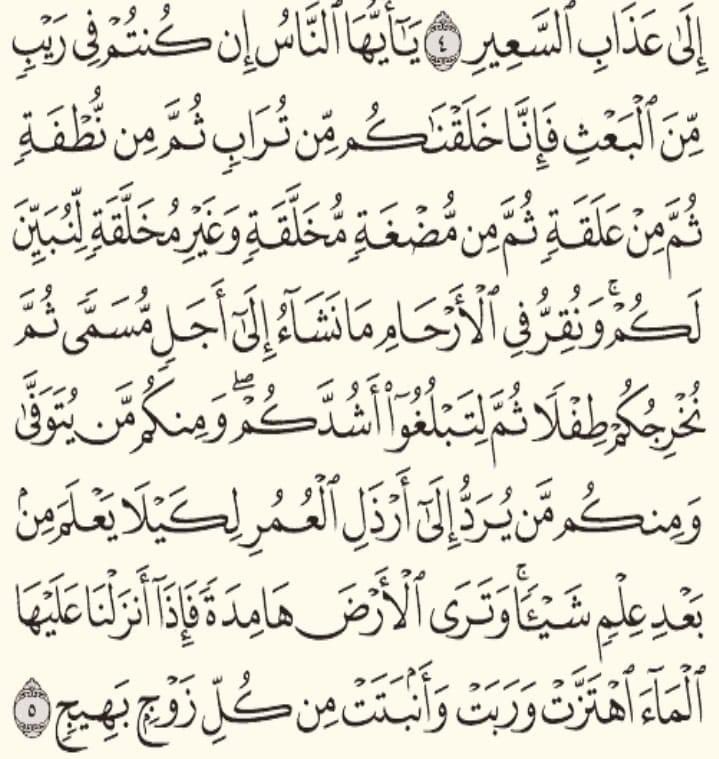 إِلَىٰ عَذَابِ ٱلسَّعِيرِ ٤ يَـٰٓأَيُّهَا ٱلنَّاسُ إِن كُنتُمْ فِى رَيْبٍ
مِّنَ ٱلْبَعْثِ فَإِنَّا خَلَقْنَـٰكُم مِّن تُرَابٍ ثُمَّ مِن نُّطْفَةٍ
ثُمَّ مِنْ عَلَقَةٍ ثُمَّ مِن مُّضْغَةٍ مُّخَلَّقَةٍ وَغَيْرِ مُخَلَّقَةٍ لِّنُبَيِّنَ
لَكُمْ ۚ وَنُقِرُّ فِى ٱلْأَرْحَامِ مَا نَشَآءُ إِلَىٰٓ أَجَلٍ مُّسَمًّى ثُمَّ
نُخْرِجُكُمْ طِفْلًا ثُمَّ لِتَبْلُغُوٓا۟ أَشُدَّكُمْ ۖ وَمِنكُم مَّن يُتَوَفَّىٰ
وَمِنكُم مَّن يُرَدُّ إِلَىٰٓ أَرْذَلِ ٱلْعُمُرِ لِكَيْلَا يَعْلَمَ مِنۢ
بَعْدِ عِلْمٍ شَيْـًٔا ۚ وَتَرَى ٱلْأَرْضَ هَامِدَةً فَإِذَآ أَنزَلْنَا عَلَيْهَا
ٱلْمَآءَ ٱهْتَزَّتْ وَرَبَتْ وَأَنۢبَتَتْ مِن كُلِّ زَوْجٍۭ بَهِيجٍ ٥